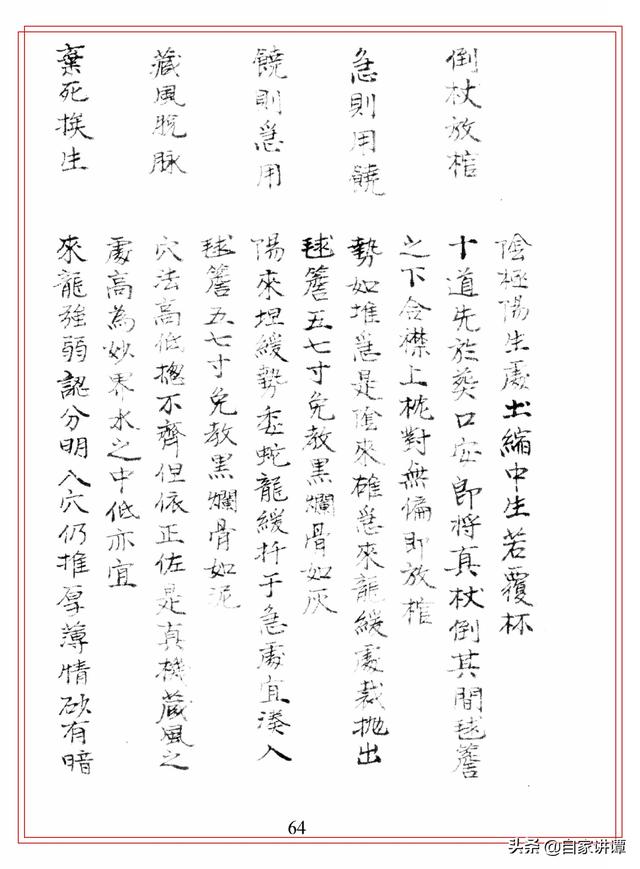 倒杖放棺
陰極陽生處土縮中生若覆杯
十道先於葬口安即將真杖倒其間毬簷
之下合襟上枕對無偏即放棺
急則用饒
勢如堆急是陰來雄急來龍緩處裁拋出
毬簷五七寸免教黑爛骨如灰
饒則急用
陽來坦緩勢委蛇龍緩扦于急處宜湊入
毬簷五七寸免教黑爛骨如泥
藏風脫脉
穴法高低摠不齊但依正佐是真機藏風之
處高為妙界水之中低亦宜
棄死挨生
來龍強弱認分明入穴仍推厚薄情砂有暗
64
头条 @自家讲谭